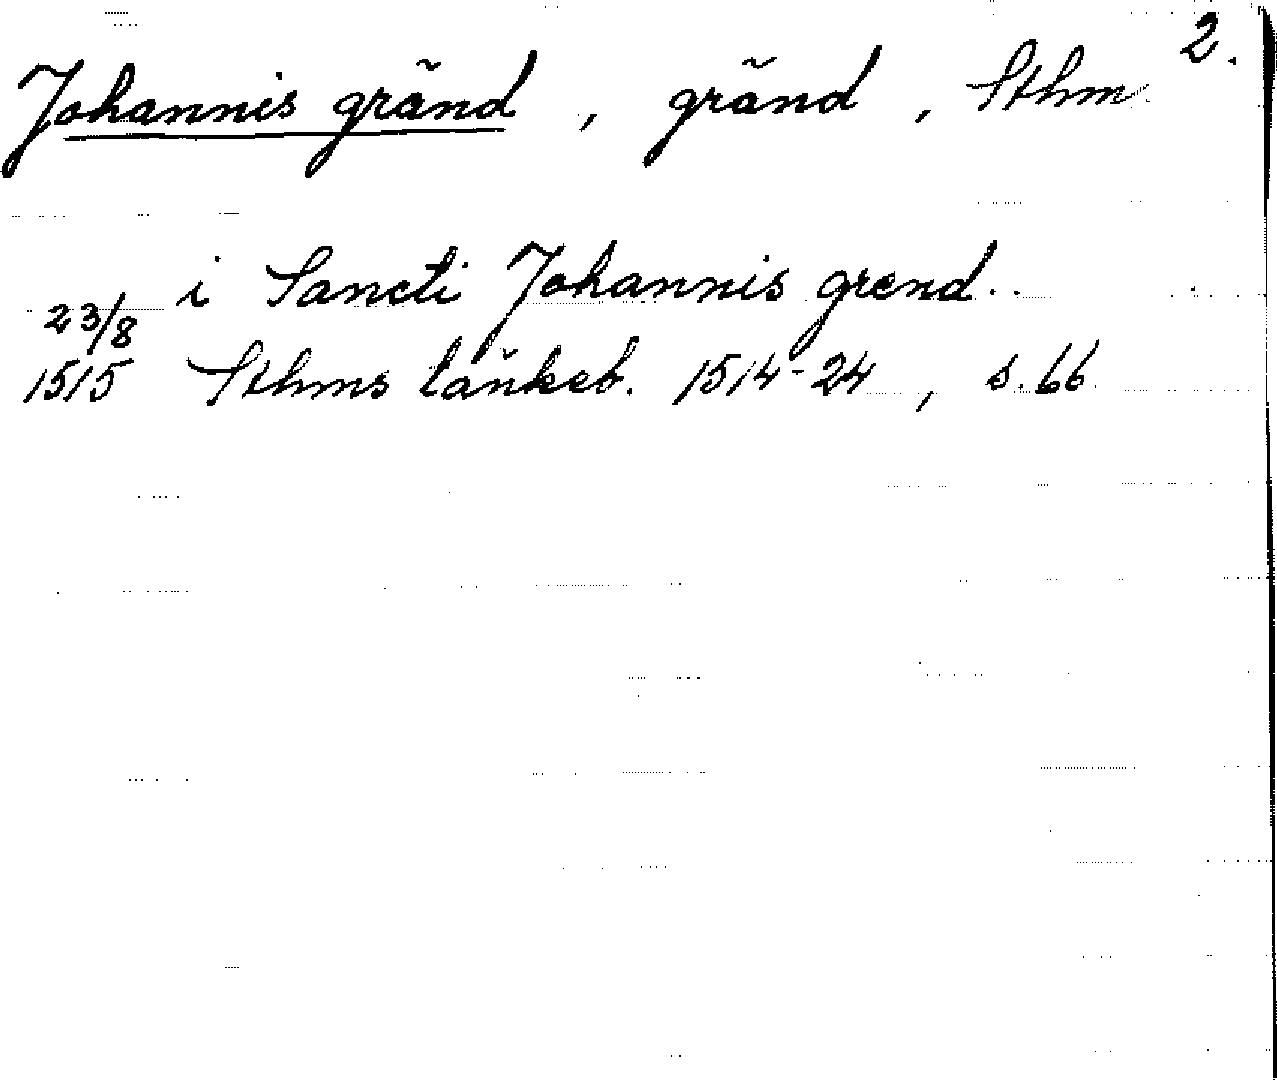 2.
Johannis gränd, gränd, Sthm
i Sancti Johannis grend..
23/8
1515 Sthms tänkeb. 1514-24, s. 66.